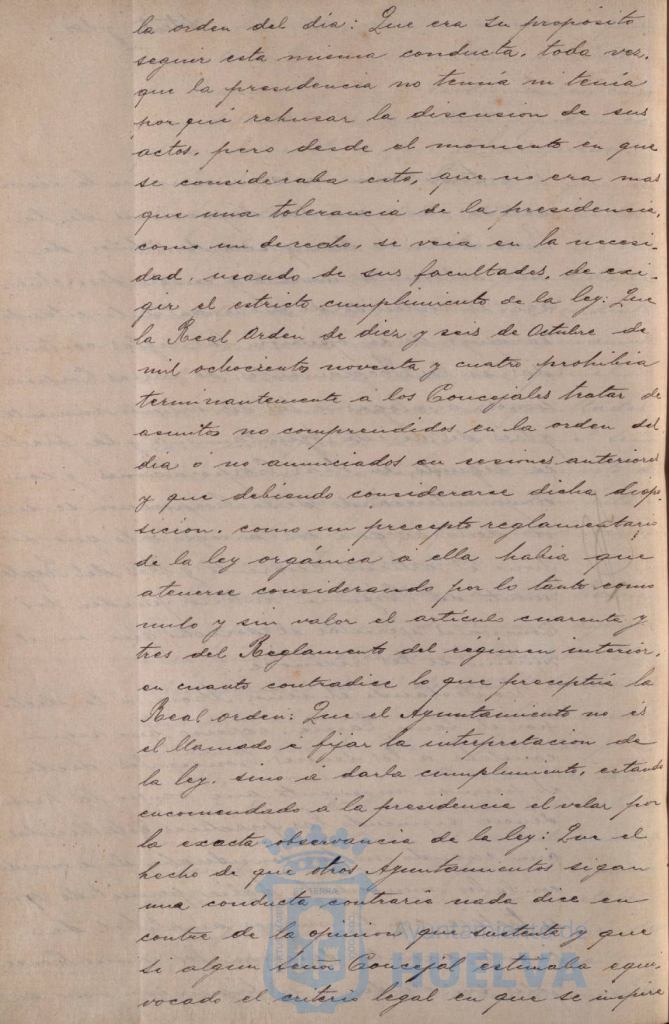 la orden del dia: Que era su proposito
seguir esta misma conducta, toda vez,
que la presidencia no temia ni tenía
por qué rehusar la discusion de sus
actos, pero desde el momento en que
se consideraba esto, que no era mas
que una tolerancia de la presidencia,
como un derecho, se veia en la necesi-
dad, usando de sus facultades, de exi-
gir el estricto cumplimiento de la ley: Que
la Real Orden de diez y seis de Octubre de
mil ochocientos noventa y cuatro prohibia
terminantemente á los Concejales tratar de
asuntos no comprendidos en la orden del
dia ó no anunciados en sesiones anteriores
y que debiendo considerarse dicha dispo-
sicion, como un precepto reglamentario
de la ley orgánica á ella habia que
atenerse considerando por lo tanto como
nulo y sin valor el artículo cuarenta y
tres del Reglamento del régimen interior,
en cuanto contradice lo que preceptúa la
Real orden: Que el Ayuntamiento no és
el llamado á fijar la interpretacion de
la ley, sino á darla cumplimiento, estando
encomendado á la presidencia el velar por
la exacta observancia de la ley: Que el
hecho de que otros Ayuntamientos sigan
una conducta contraria nada dice en
contra de la opinion que sustenta y que
si algun señor Concejal estimaba equi-
vocado el criterio legal en que se inspire
Ayuntamiento de
HUELVA